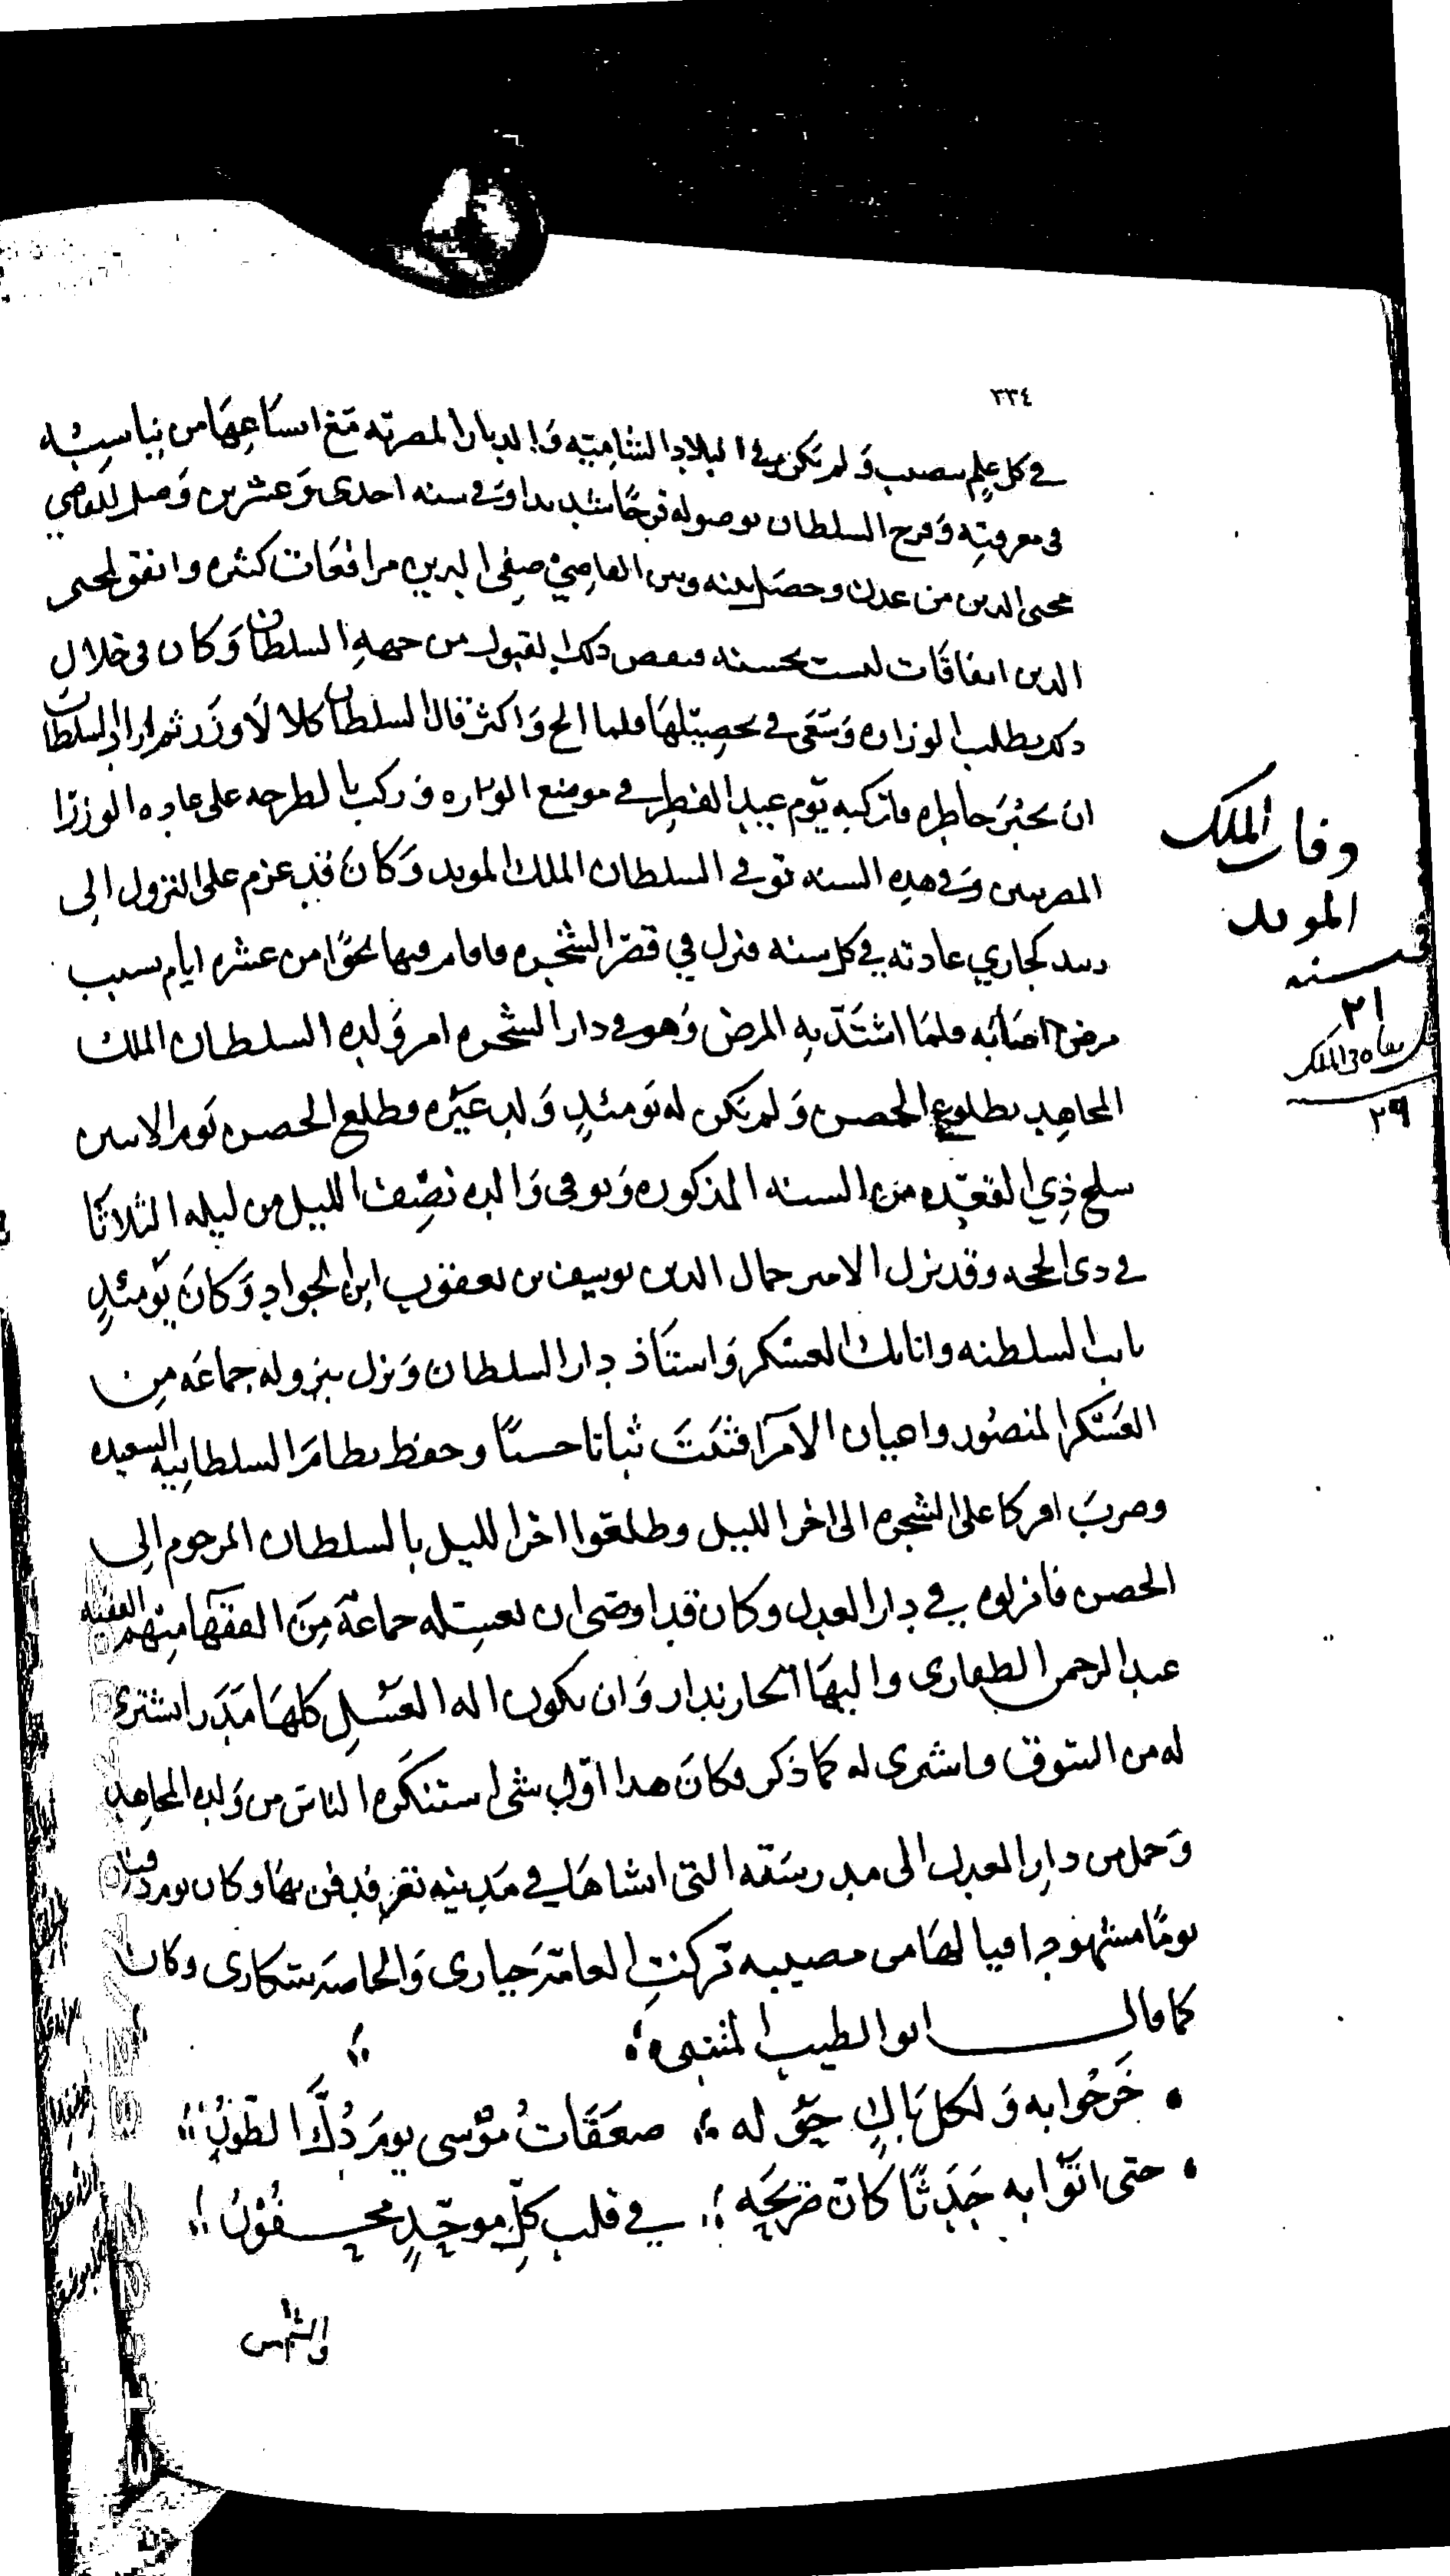 ٣٣٤
في كل علم بنصيب ولم يكن في البلاد الشاميه والديار المصريه مع اتساعها من يناسبه
في معرفته وفرح السلطان بوصوله فرحًا شديدا وفي سنه احدى وعشرين وصل القاضي
محيى الدين من عدن وحصل بينه وبين القاضي صفي الدين مرافعات كثيره واتفق لمحيى
الدين اتفاقات ليست بحسنه فنقص ذلك القبول من جهه السلطان وكان في خلال
ذلك يطلب الوزاره ويسعى في تحصيلها فلما الح واكثر قال السلطان كلا لا وزر ثم اراد السلطان
ان يجبر خاطره فاركبه يوم عيد الفطر في موضع الوزاره وركب بالطرحه على عاده الوزرا
المصريين وفي هذه السنه توفي السلطان الملك المويد وكان قد عزم على النزول الى
زبيد كجاري عادته في كل سنه فنزل في قصر الشجره واقام فيها نحوًا من عشره ايام بسبب
مرض اصابه فلما اشتد به المرض وهو في دار الشجره امر ولده السلطان الملك
المجاهد بطلوع الحصن ولم يكن له يومئذٍ ولد غيره فطلع الحصن يوم الاثنين
سلخ ذي القعده من السنه المذكوره وتوفى والده نصف الليل من ليله الثلاثا
في ذى الحجه وقد نزل الامير جمال الدين يوسف بن يعقوب ابن الجواد وكان يومئذٍ
نايب السلطنه واتابك العسكر واستاذ دار السلطان ونزل بنزوله جماعه من
العسكر المنصور واعيان الامرا فثبت ثباتا حسنًا وحفظ نظام السلطانيه السعيده
وضرب افركا على الشجره الى اخر الليل وطلعوا اخر الليل بالسلطان المرحوم الى
الحصن فانزلوه في دار العدل وكان قد اوصى ان يغسله جماعة من الفقها منهم الفقيه
عبد الرحمن الظفارى والبها الخازندار وان يكون اله الغسل كلها مدر اشترى
له من السوق واشترى له كما ذكر فكان هذا اول شى استنكره الناس من ولده المجاهد
وحمل من دار العدل الى مدرسته التى انشاها في مدينه تعز فدفن بها وكان يوم دفنه
يومًا مشهودا فيا لها من مصيبه تركت العامة حيارى والخاصه سكارى وكان
كما قال ابو الطيب المتنبى
خرجوا به ولكل باكٍ حوله صعقات موسى يوم دك الطور
حتى اتوا به جدثًا كان ضريحه في قلب كل موحدٍ محفور
والشمس
وفات الملك
المويد
في سنه
٢١
الملك
٢٩